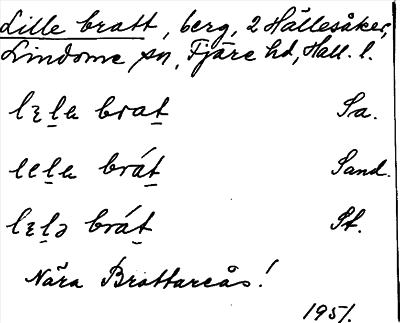 Lille bratt, berg, 2 Hällesåker,
Lindome sn, Fjäre hd, Hall. l.
lɛla brat Sa.
lela brát Sand.
lɛlə brát St.
Nära Brattareås!
1951.